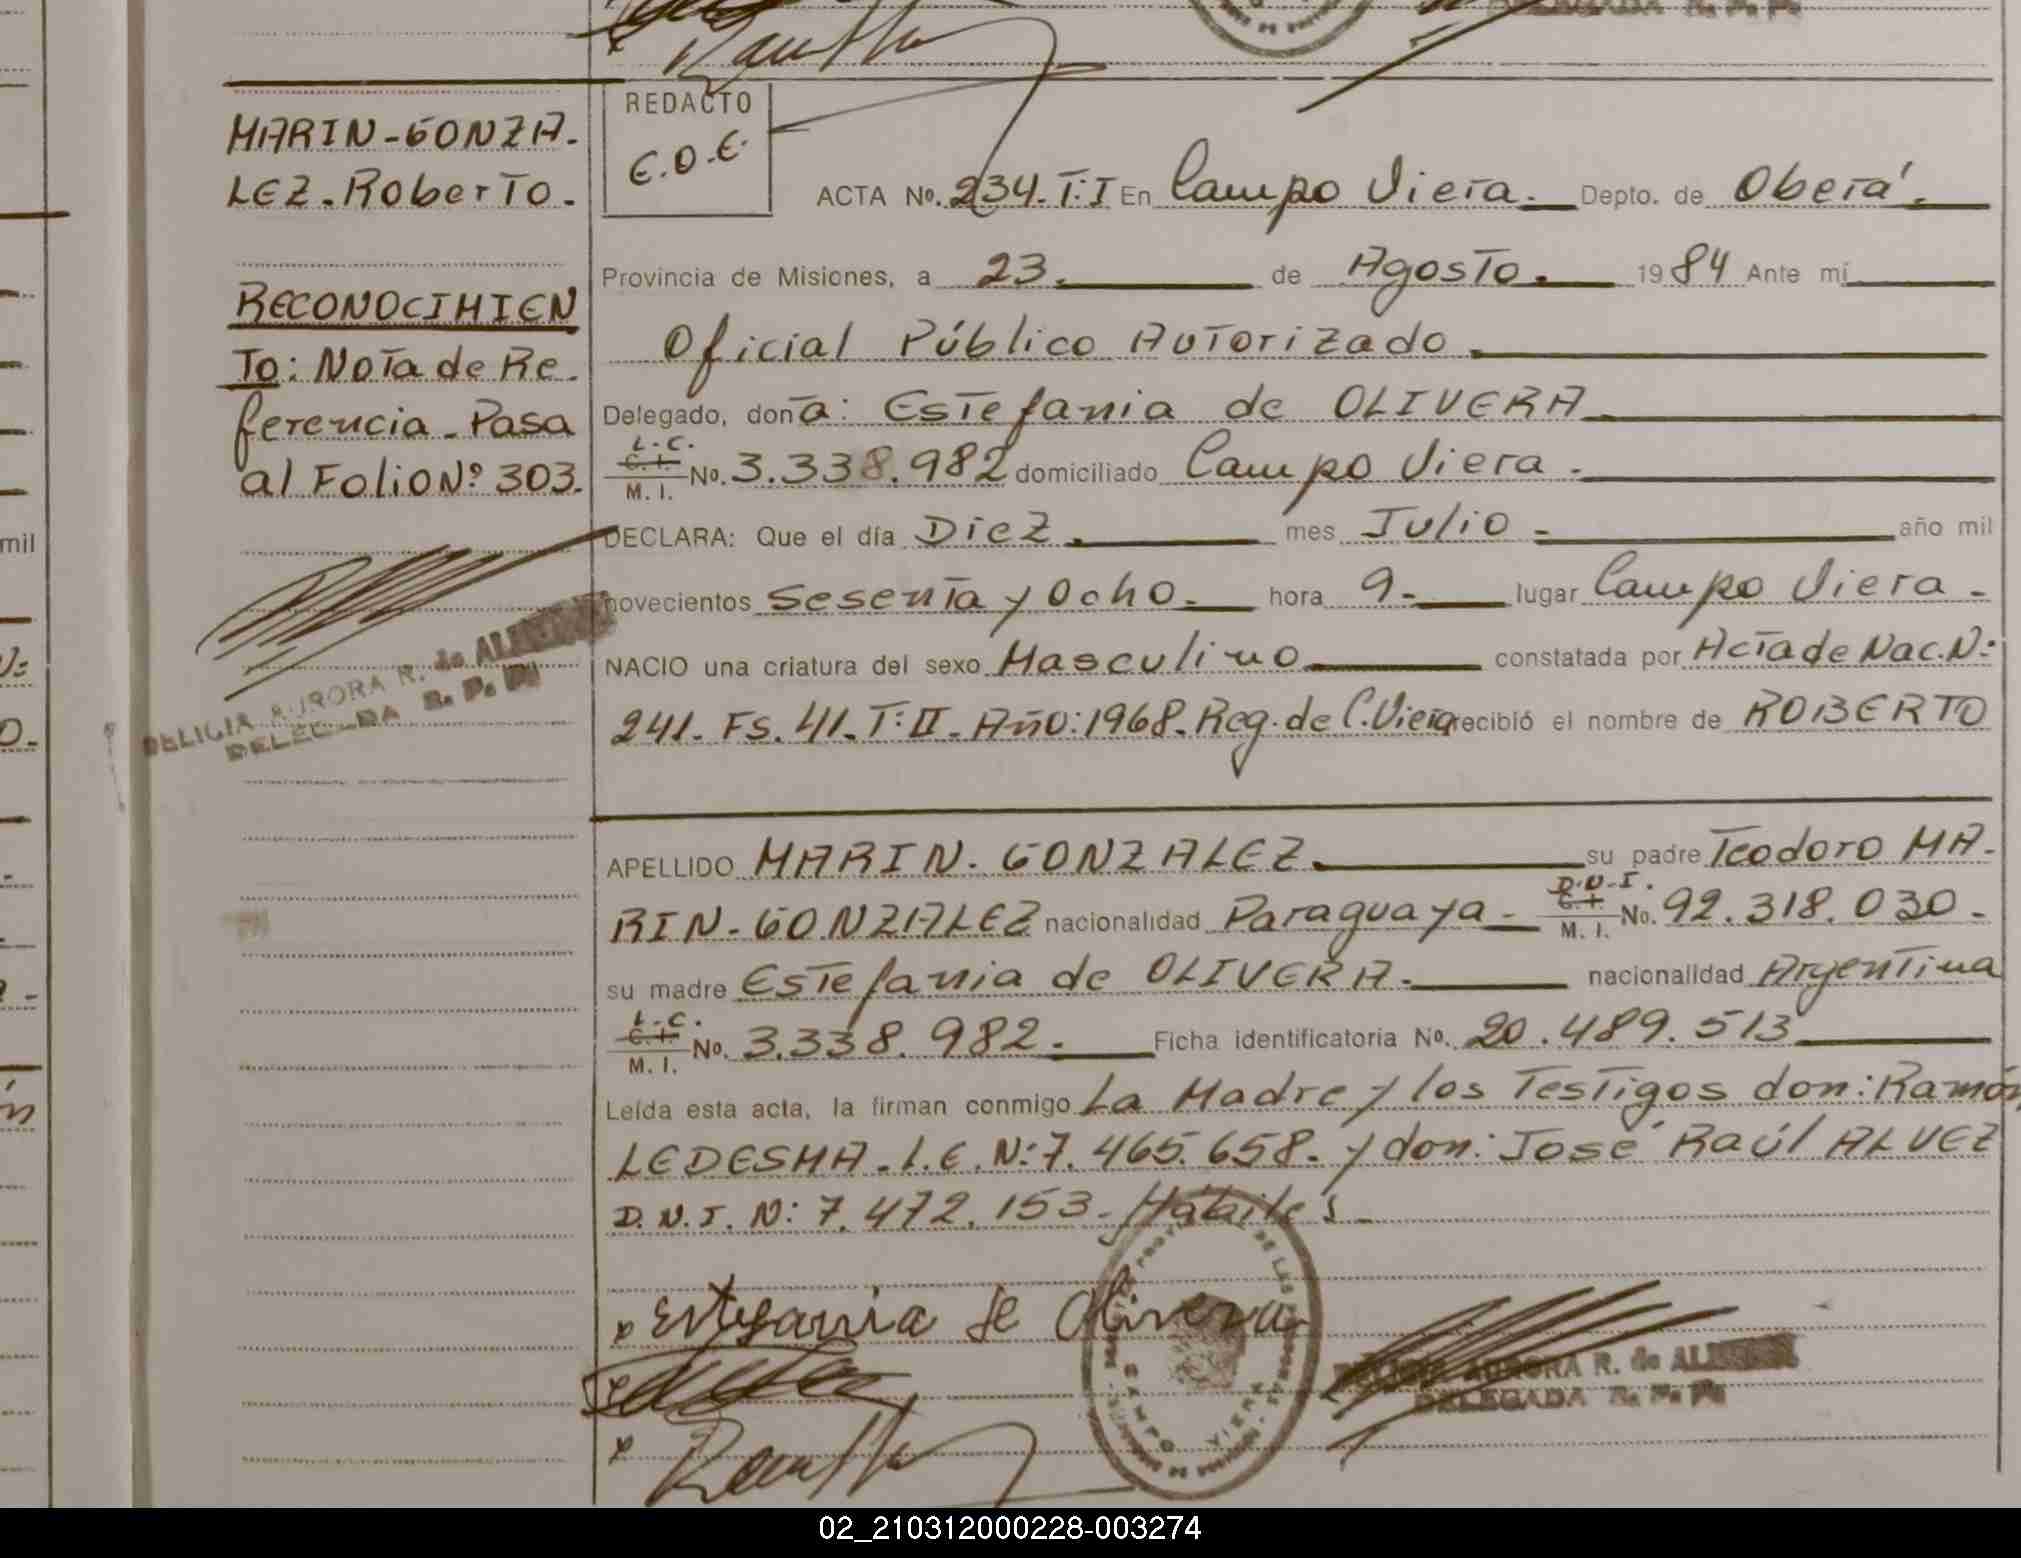 MARIN-GONZA-
LEZ. Roberto.
RECONOCIMIEN
To: Nota de Re-
ferencia. Pasa
al Folio Nº 303.
DELICIA AURORA R. de
DELEGADA R. P. P.
REDACTO
E.O.E.
ACTA No. 234. T:I En Campo Viera. Depto. de Oberá.
Provincia de Misiones, a 23. de Agosto. 1984 Ante mí
Oficial Público Autorizado.
Delegado, doña: Estefania de OLIVERA
L.C.
C.I.
M. I. No. 3.338.982 domiciliado Campo Viera.
DECLARA: Que el día Diez. mes Julio. año mil
novecientos Sesenta y Ocho. hora 9. lugar Campo Viera.
NACIO una criatura del sexo Masculino constatada por Acta de Nac. N:
241. FS. 41. T:II. Año:1968. Reg. de C. Viera recibió el nombre de ROBERTO
APELLIDO MARIN-GONZALEZ. su padre Teodoro MA-
D.N.I.
RIN-GONZALEZ nacionalidad Paraguaya. C.I. M. I. No. 92.318.030.
su madre Estefania de OLIVERA. nacionalidad Argentina
L.C.
C.I.
M. I. No. 3.338.982. Ficha identificatoria No. 20.489.513
Leída esta acta, la firman conmigo La Madre y los Testigos don: Ramón
LEDESMA. L.E. N:7.465.658. y don: José Raúl ALVEZ
D.N.I. N: 7.472.153. Hábiles.
x Estefania de Olivera
CAMPO VIERA
AURORA R. de
DELEGADA R. P. P.
x
x
mil
02_210312000228-003274